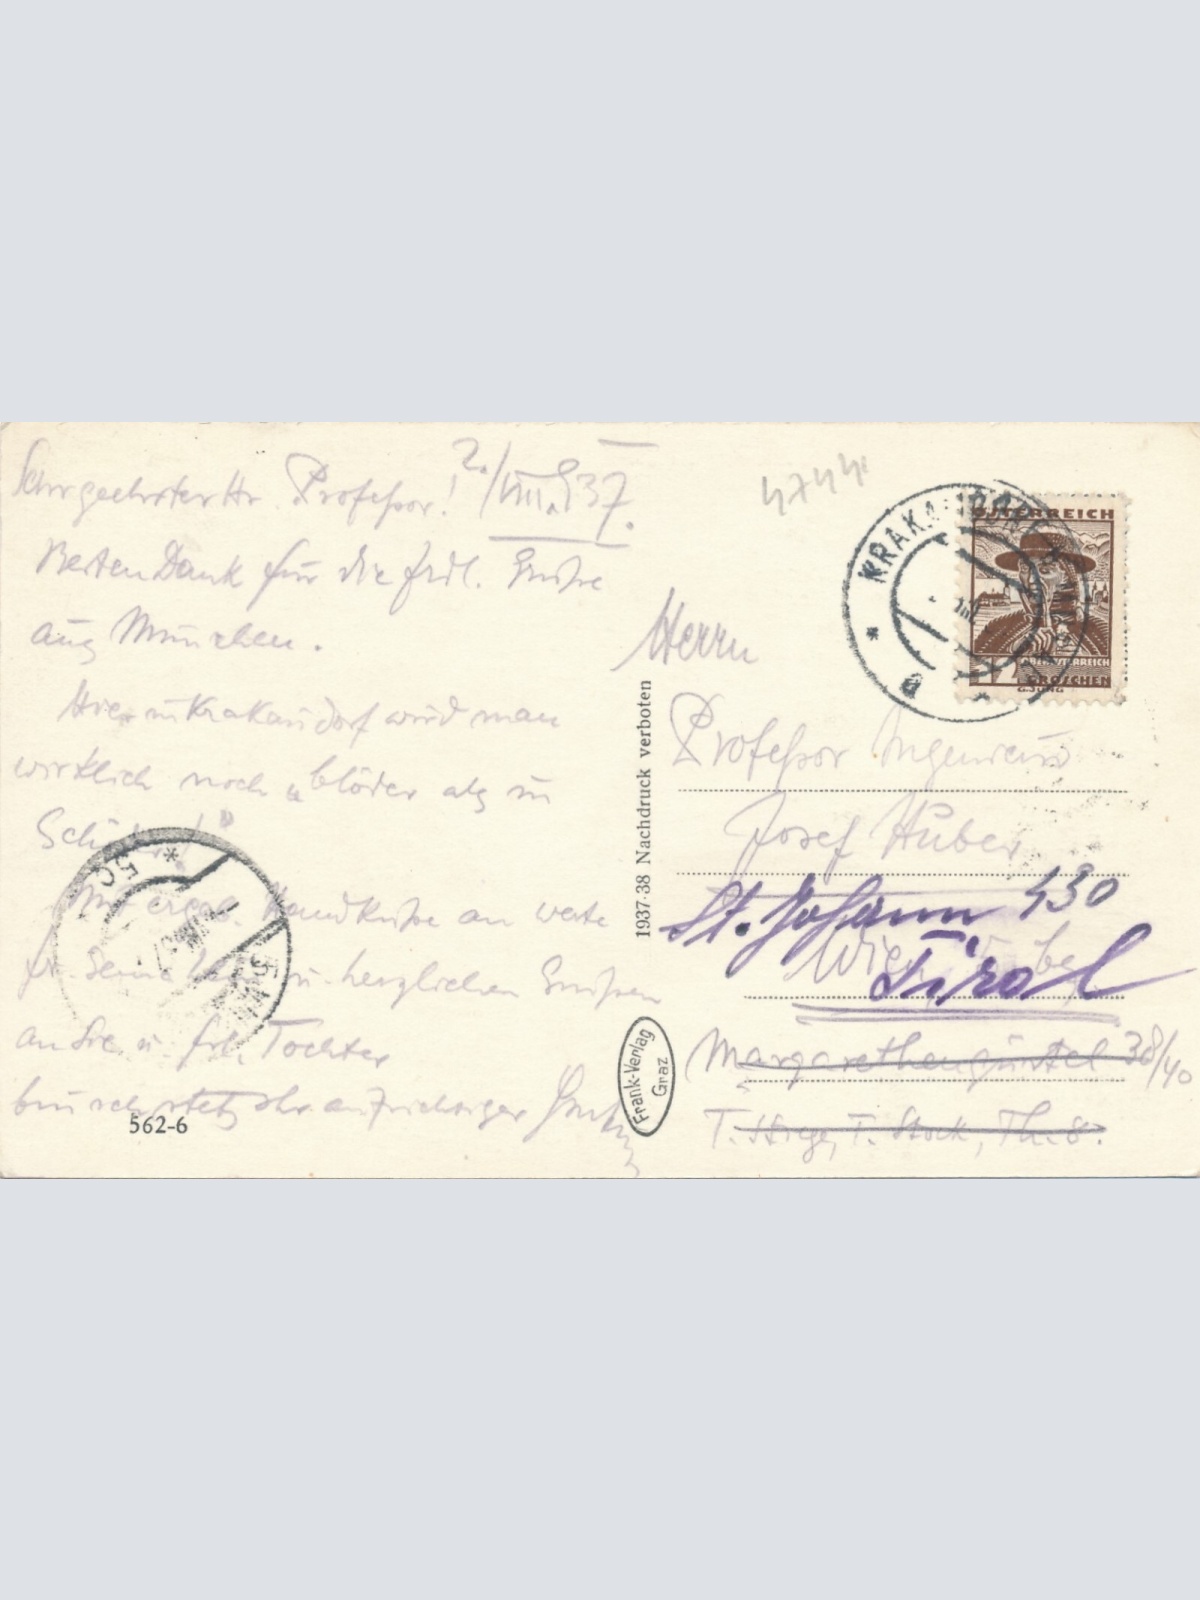 2./VIII. 937.
Sehrgeehrter Hr Professor!
Besten Dank für die frdl. Grüße
aus München.
Hier in Krakaudorf wird man
wirklich noch "blöder als in
Mit ergeb. Handküße an werte
Fr. u. herzlichen Grüßen
an Sie u. frl. Tochter
bin ich stets Ihr aufrichtiger
562-6
1937-38 Nachdruck verboten
Frank-Verlag
Graz
4744
KRAKAUDORF
a
ÖSTERREICH
OBERÖSTERREICH
12 GROSCHEN
G.JUNG
Herrn
Professor Ingenieur
Josef Huber
St. Johann 430
Wien
Tirol
Margarethengürtel 38/40
T. Stiege, T. Stock, Th. 8.